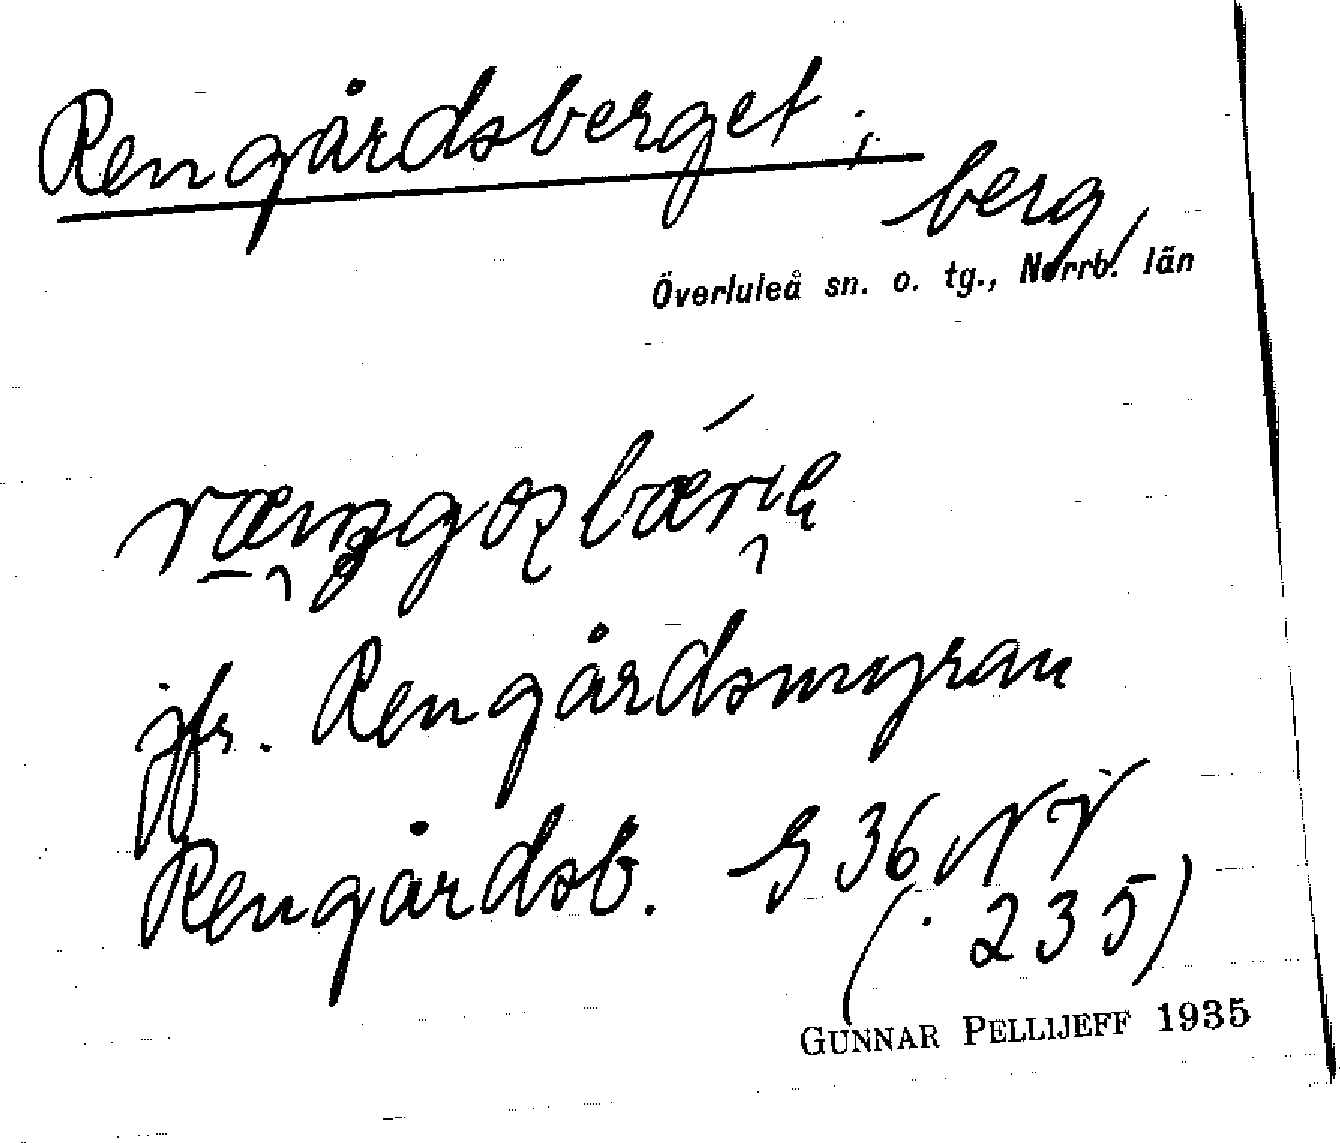 Rengårdsberget;
berg,
Överluleå sn. o. tg., Norrb. län
jfr. Rengårdsmyran
Rengårdsb. G 36 NV
(. 235)
GUNNAR PELLIJEFF 1935